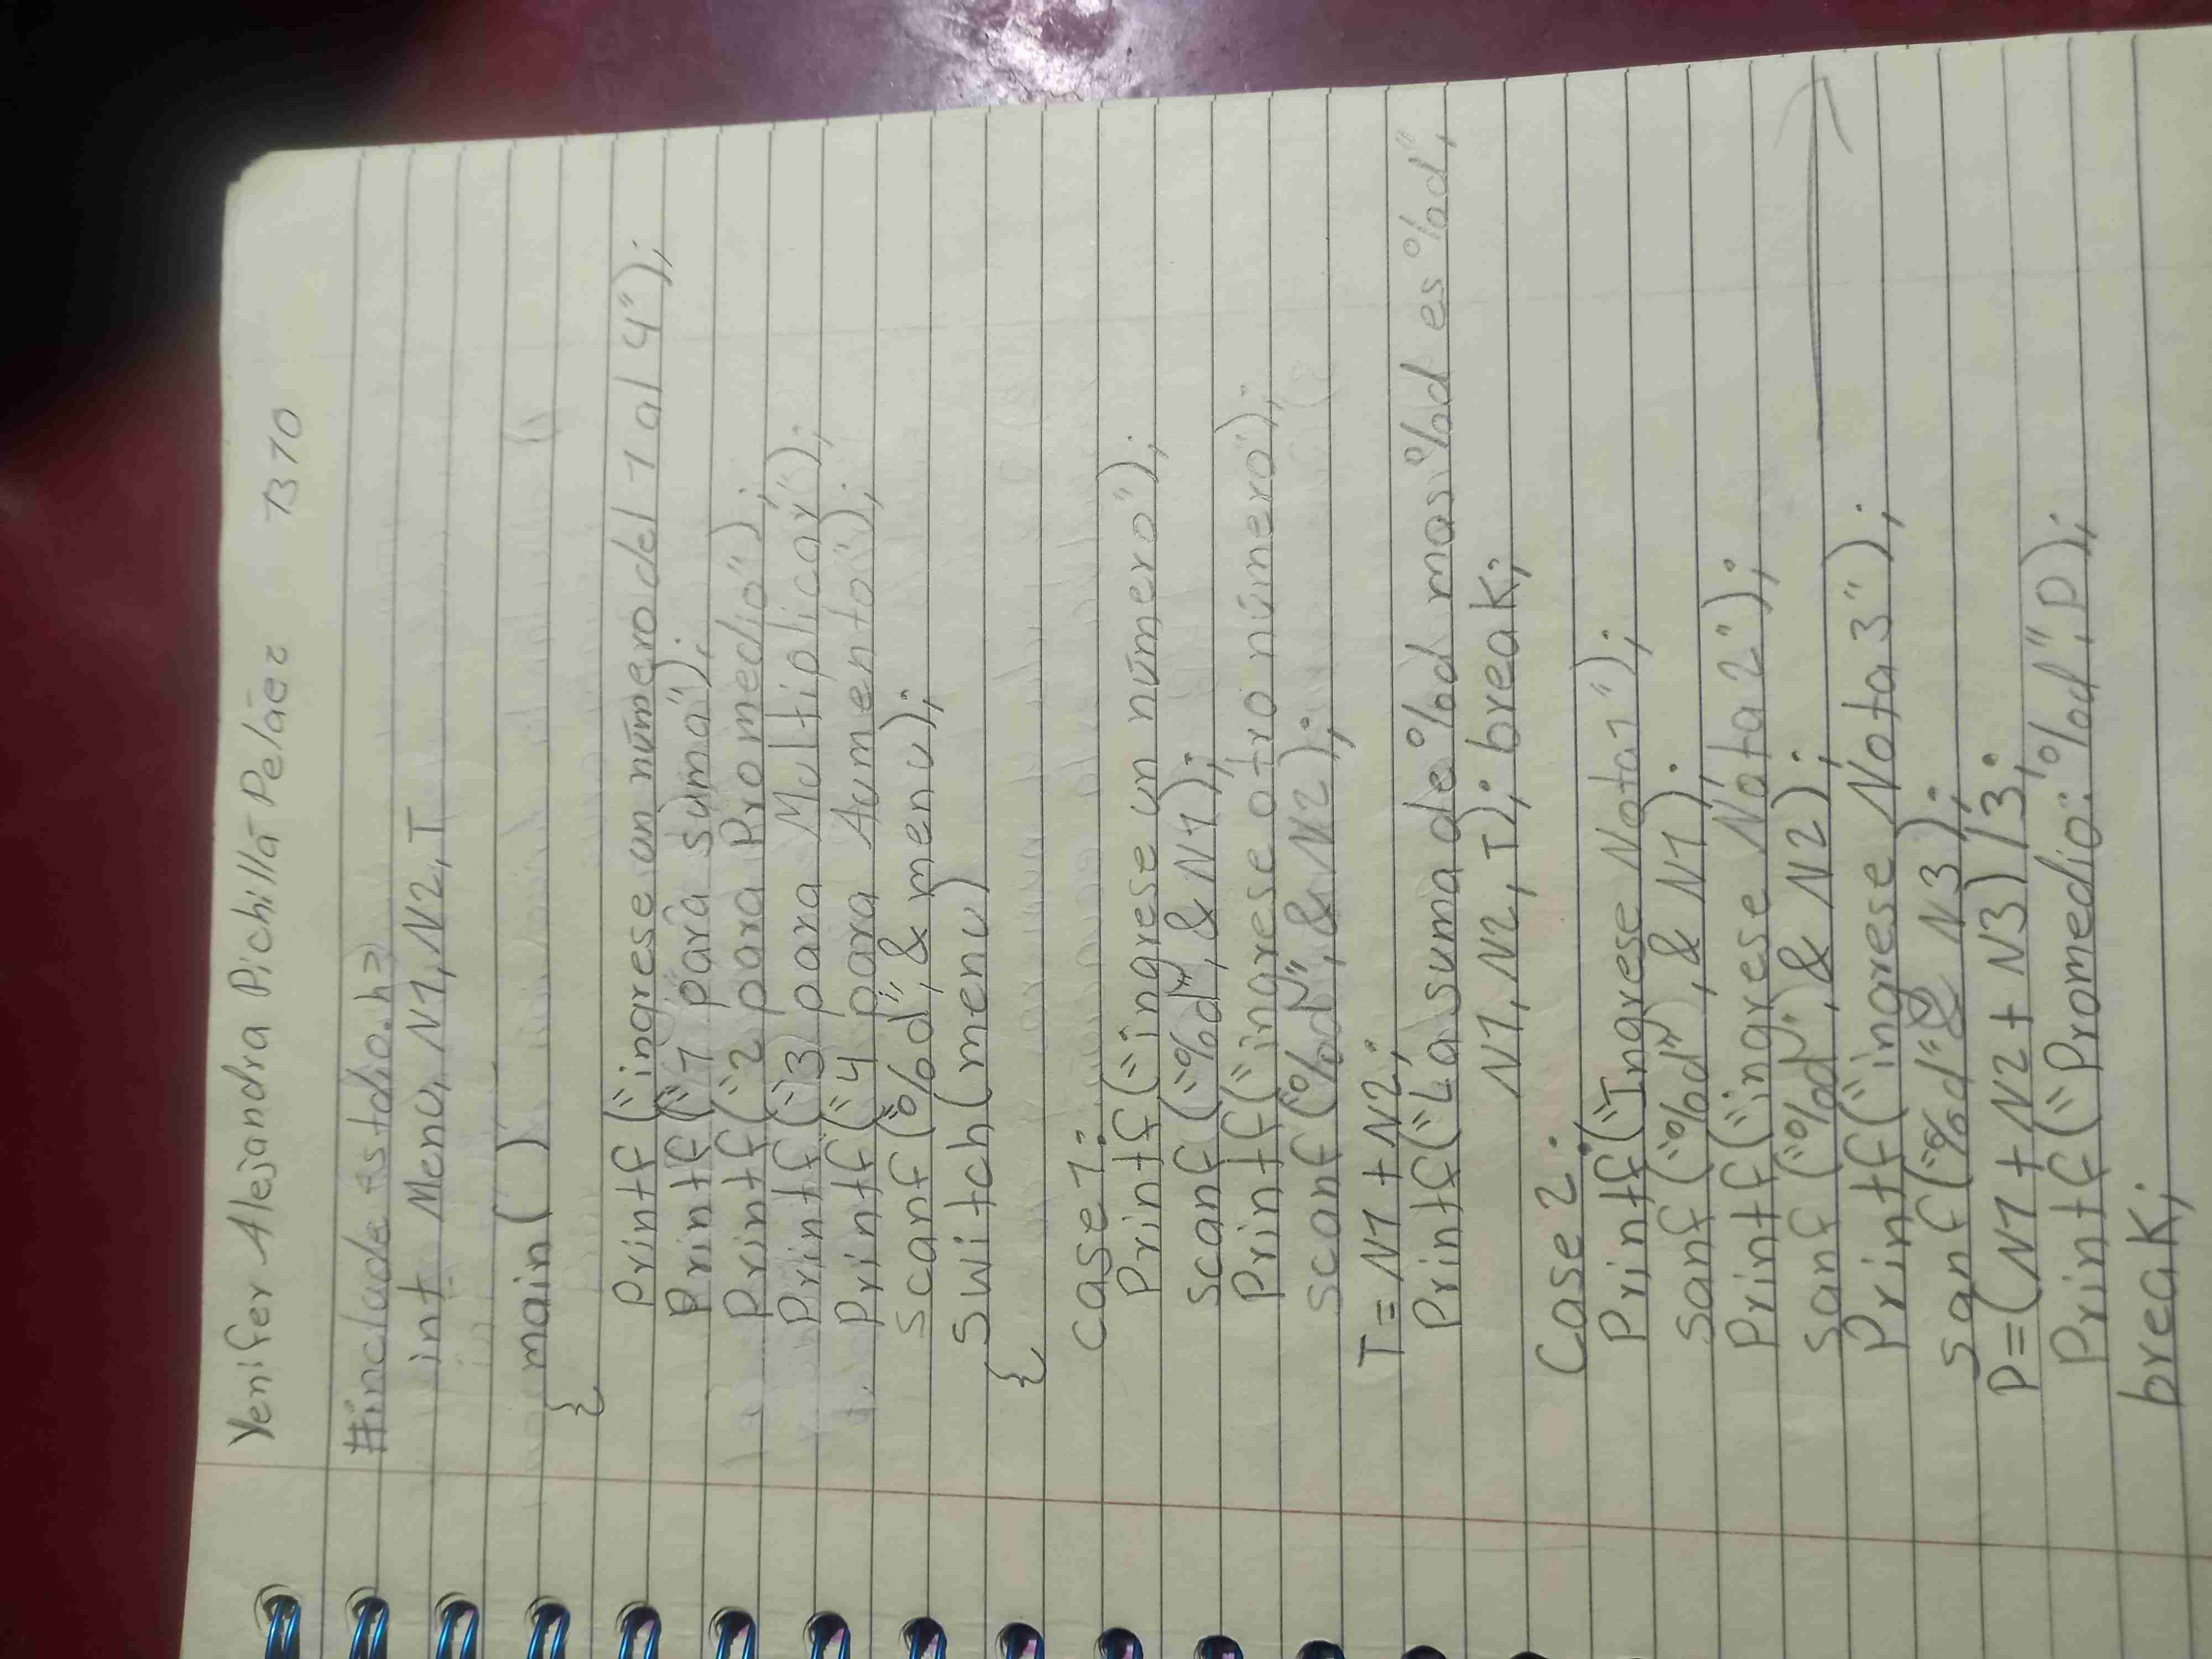 Yenifer Alejandra Pichillá Peláez B10
#include <stdio.h>
int Menu, N1, N2, T
main( )
{
Printf ("ingrese un número del 1 al 4");
Printf ("1 para suma");
Printf ("2 para Promedio");
Printf ("3 para Multiplicar");
Printf ("4 para Aumento");
scanf ("%d", & menu);
Switch (menu)
{
Case 1:
Printf ("ingrese un número");
scanf ("%d", & N1);
Printf ("ingrese otro número");
scanf ("%d", & N2);
T = N1 + N2;
Printf ("La suma de %d mas %d es %d",
N1, N2, T); break;
Case 2:
Printf ("Ingrese Nota1");
Sanf ("%d", & N1);
Printf ("ingrese Nota2");
Sanf ("%d", & N2);
Printf ("ingrese Nota3");
Sanf ("%d" & N3);
P = (N1 + N2 + N3) / 3;
Printf ("Promedio: %d", P);
break;